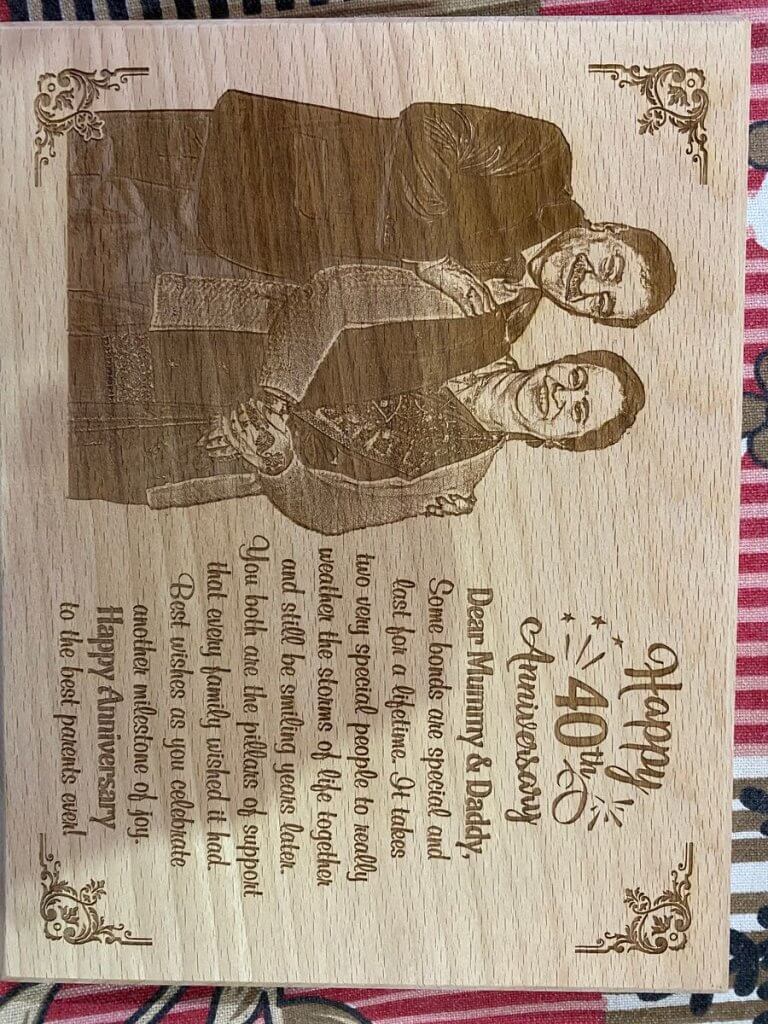 Happy
40th
Anniversary
Dear Mummy & Daddy,
Some bonds are special and
last for a lifetime. It takes
two very special people to really
weather the storms of life together
and still be smiling years later.
You both are the pillars of support
that every family wished it had.
Best wishes as you celebrate
another milestone of joy.
Happy Anniversary
to the best parents ever!